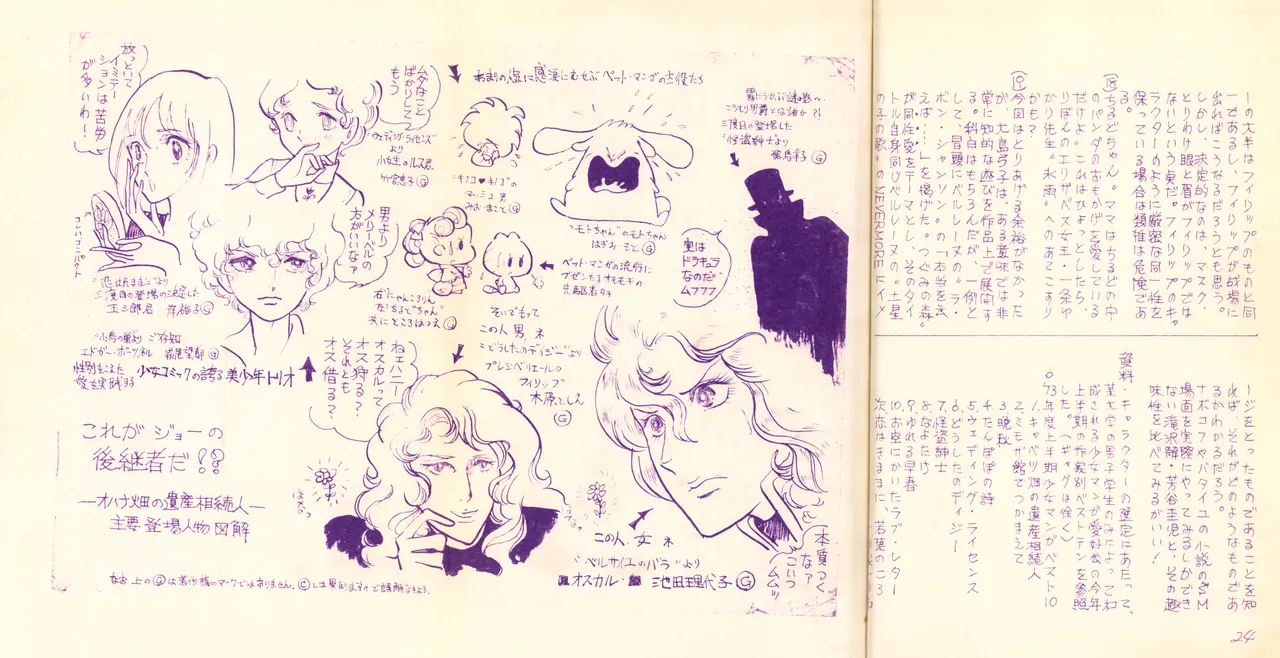 放っといて
イミテー
ションは苦労
が多いわ！
コンパコ・コンパクト
ムダなこと
ばかりして
もう
"ウェディング・ライセンス"
より
小女生のルス君
竹宮恵子Ⓖ
あまりの傷に感涙にむせぶペット・マンガの主役たち
"キノコ♥キノコ"の
マッシュ君
みお・まことⒼ
"モトちゃん"のモトちゃん
はぎお・もとⒼ
霧にうかぶ謎の影へ
こうもり男爵とは誰か？！
三度目の登場した
"怪盗紳士"より
Ⓖ
実は
ドラキュラ
なのだ
ムフフフ
男より
メリーベルの
方がいいなァ
三度目の登場の決定した
玉三郎君 岸裕子Ⓖ
"小鳥の巣"より ご存知
エドガー・ポーツネル 萩尾望都Ⓖ
性別をこえた
愛を実践する
少女コミックの誇る美少年トリオ
右"にゃんころりん"
左"ちるどちゃん"
共にところはつえⒼ
ペット・マンガの流行に
先駆者タチ
そいでもって
この人 男，ネ
"どうしたのデイジー"より
プレシベリエールの
フィリップ
木原としえ
Ⓖ
ねェハニー
オスカルって
オス狩る？
それとも
オス借る？
これがジョーの
後継者だ！？
―オハナ畑の遺産相続人―
主要登場人物図解
なお，上のⒼは著作権のマークではありません。Ⓒとは異なりますので誤解なきよう。
この人，女，ネ
"ベルサイユのバラ"より
オスカル・ 池田理代子Ⓖ
本質つく
なァ
こいつ
ムムッ
ーの大半はフィリップのものと同
一であるし，フィリップが成場に
出ればこうなるだろうとも思う。
しかし，決定的なのは，マスク，
とりわけ眼と眉でフィリップでは
ないという点だ。フィリップのキャ
ラクターのように厳密な同一性を
保っている場合は類推は危険であ
る。
⑱"ちるどちゃん"ママはちるどの中
のパンダのおもかげを愛している
だけよ"とこれはひょっとしたら，
"りぼんのエリザベス女王・一条ゆ
かり先生"氷雨"へのあてこすり
かも？
⑲今回はとりあげる余裕がなかった
が，大島弓子は，ある意味では非
常に知的な遊びを作品上で展開す
る。科白はもちろんだが，一例と
して，冒頭にベルレーヌの"ラ・
ボン・シャンソン"の"本当を云
えば……"を掲げた"つぐみの森"
が同性愛をテーマとし，そのタイ
トル自身同じベルレーヌの"土星
の子の歌"のNEVERMOREにイメ
ージをとったものであることを知
れば，それがどのようなものであ
るかわかるだろう。
ナボコフやバタイユの小説のSM
場面を実際にやってみるしかでき
ない滝沢解・芳谷圭児と，その趣
味性を比べてみるがいい！
資料・キャラクターの選定にあたって，
某大学の男子学生のみによって构
成される少女マンガ愛好会の今年
上半期の作家別ベストテンを参照
した。（ギャグは除く）
○'73年度上半期少女マンガベスト10
1.キャベツ畑の遺産相続人
2.ミモザ館でつかまえて
3.晩秋
4.たんぽぽの詩
5.ウェディング・ライセンス
6.どうしたのデイジー
7.怪盗紳士
8.なよたけ
9.ゆれる早春
10.お空にかいたラブ・レター
次.恋はきままに，若葉のころ
24